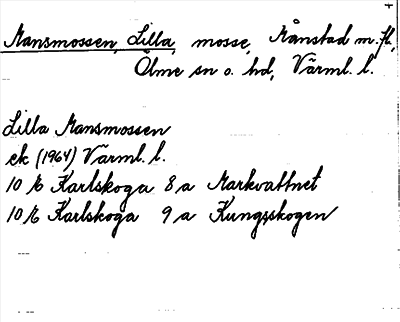 Mansmossen, Lilla, mosse, Månstad m. fl.,
Ölme sn o. hd, Värml. l.
Lilla Mansmossen
ek (1964) Värml. l.
10 E Karlskoga 8 a Markvattnet
10 E Karlskoga 9 a Kungsskogen